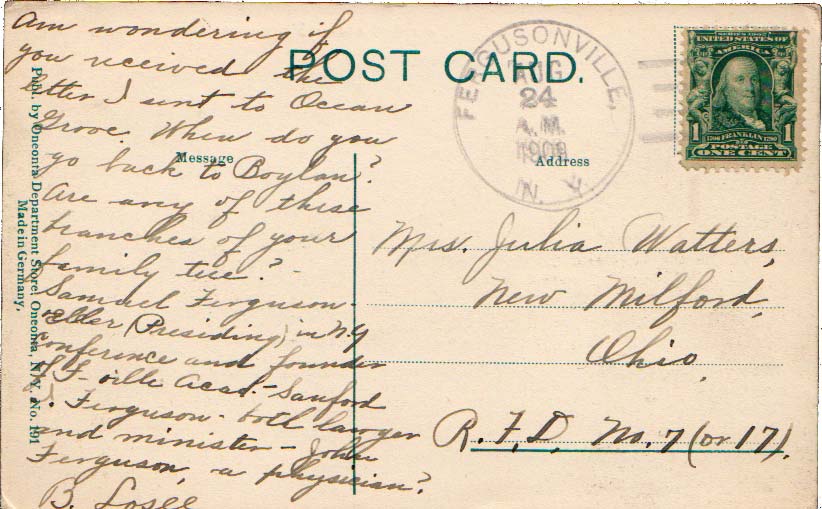 POST CARD.
FERGUSONVILLE,
AUG
24
A.M.
N. Y.
SERIES 1902
UNITED STATES OF
AMERICA
1 1706 FRANKLIN 1790 1
POSTAGE
ONE CENT
Message
Address
Am wondering if
you received the
letter I sent to Ocean
Grove. When do you
go back to Boylan?
Are any of these
branches of your
family tree? -
Samuel Ferguson -
elder (Presiding) in N.Y
conference and founder
of F-ville Acad. - Sanford
I. Ferguson - both lawyer
and minister - John
Ferguson, a physician?
B. Losee
Mrs. Julia Watters,
New Milford,
Ohio,
R. F. D. No. 7 (or 17).
Publ. by Oneonta Department Store, Oneonta, N. Y. No. 191
Made in Germany.